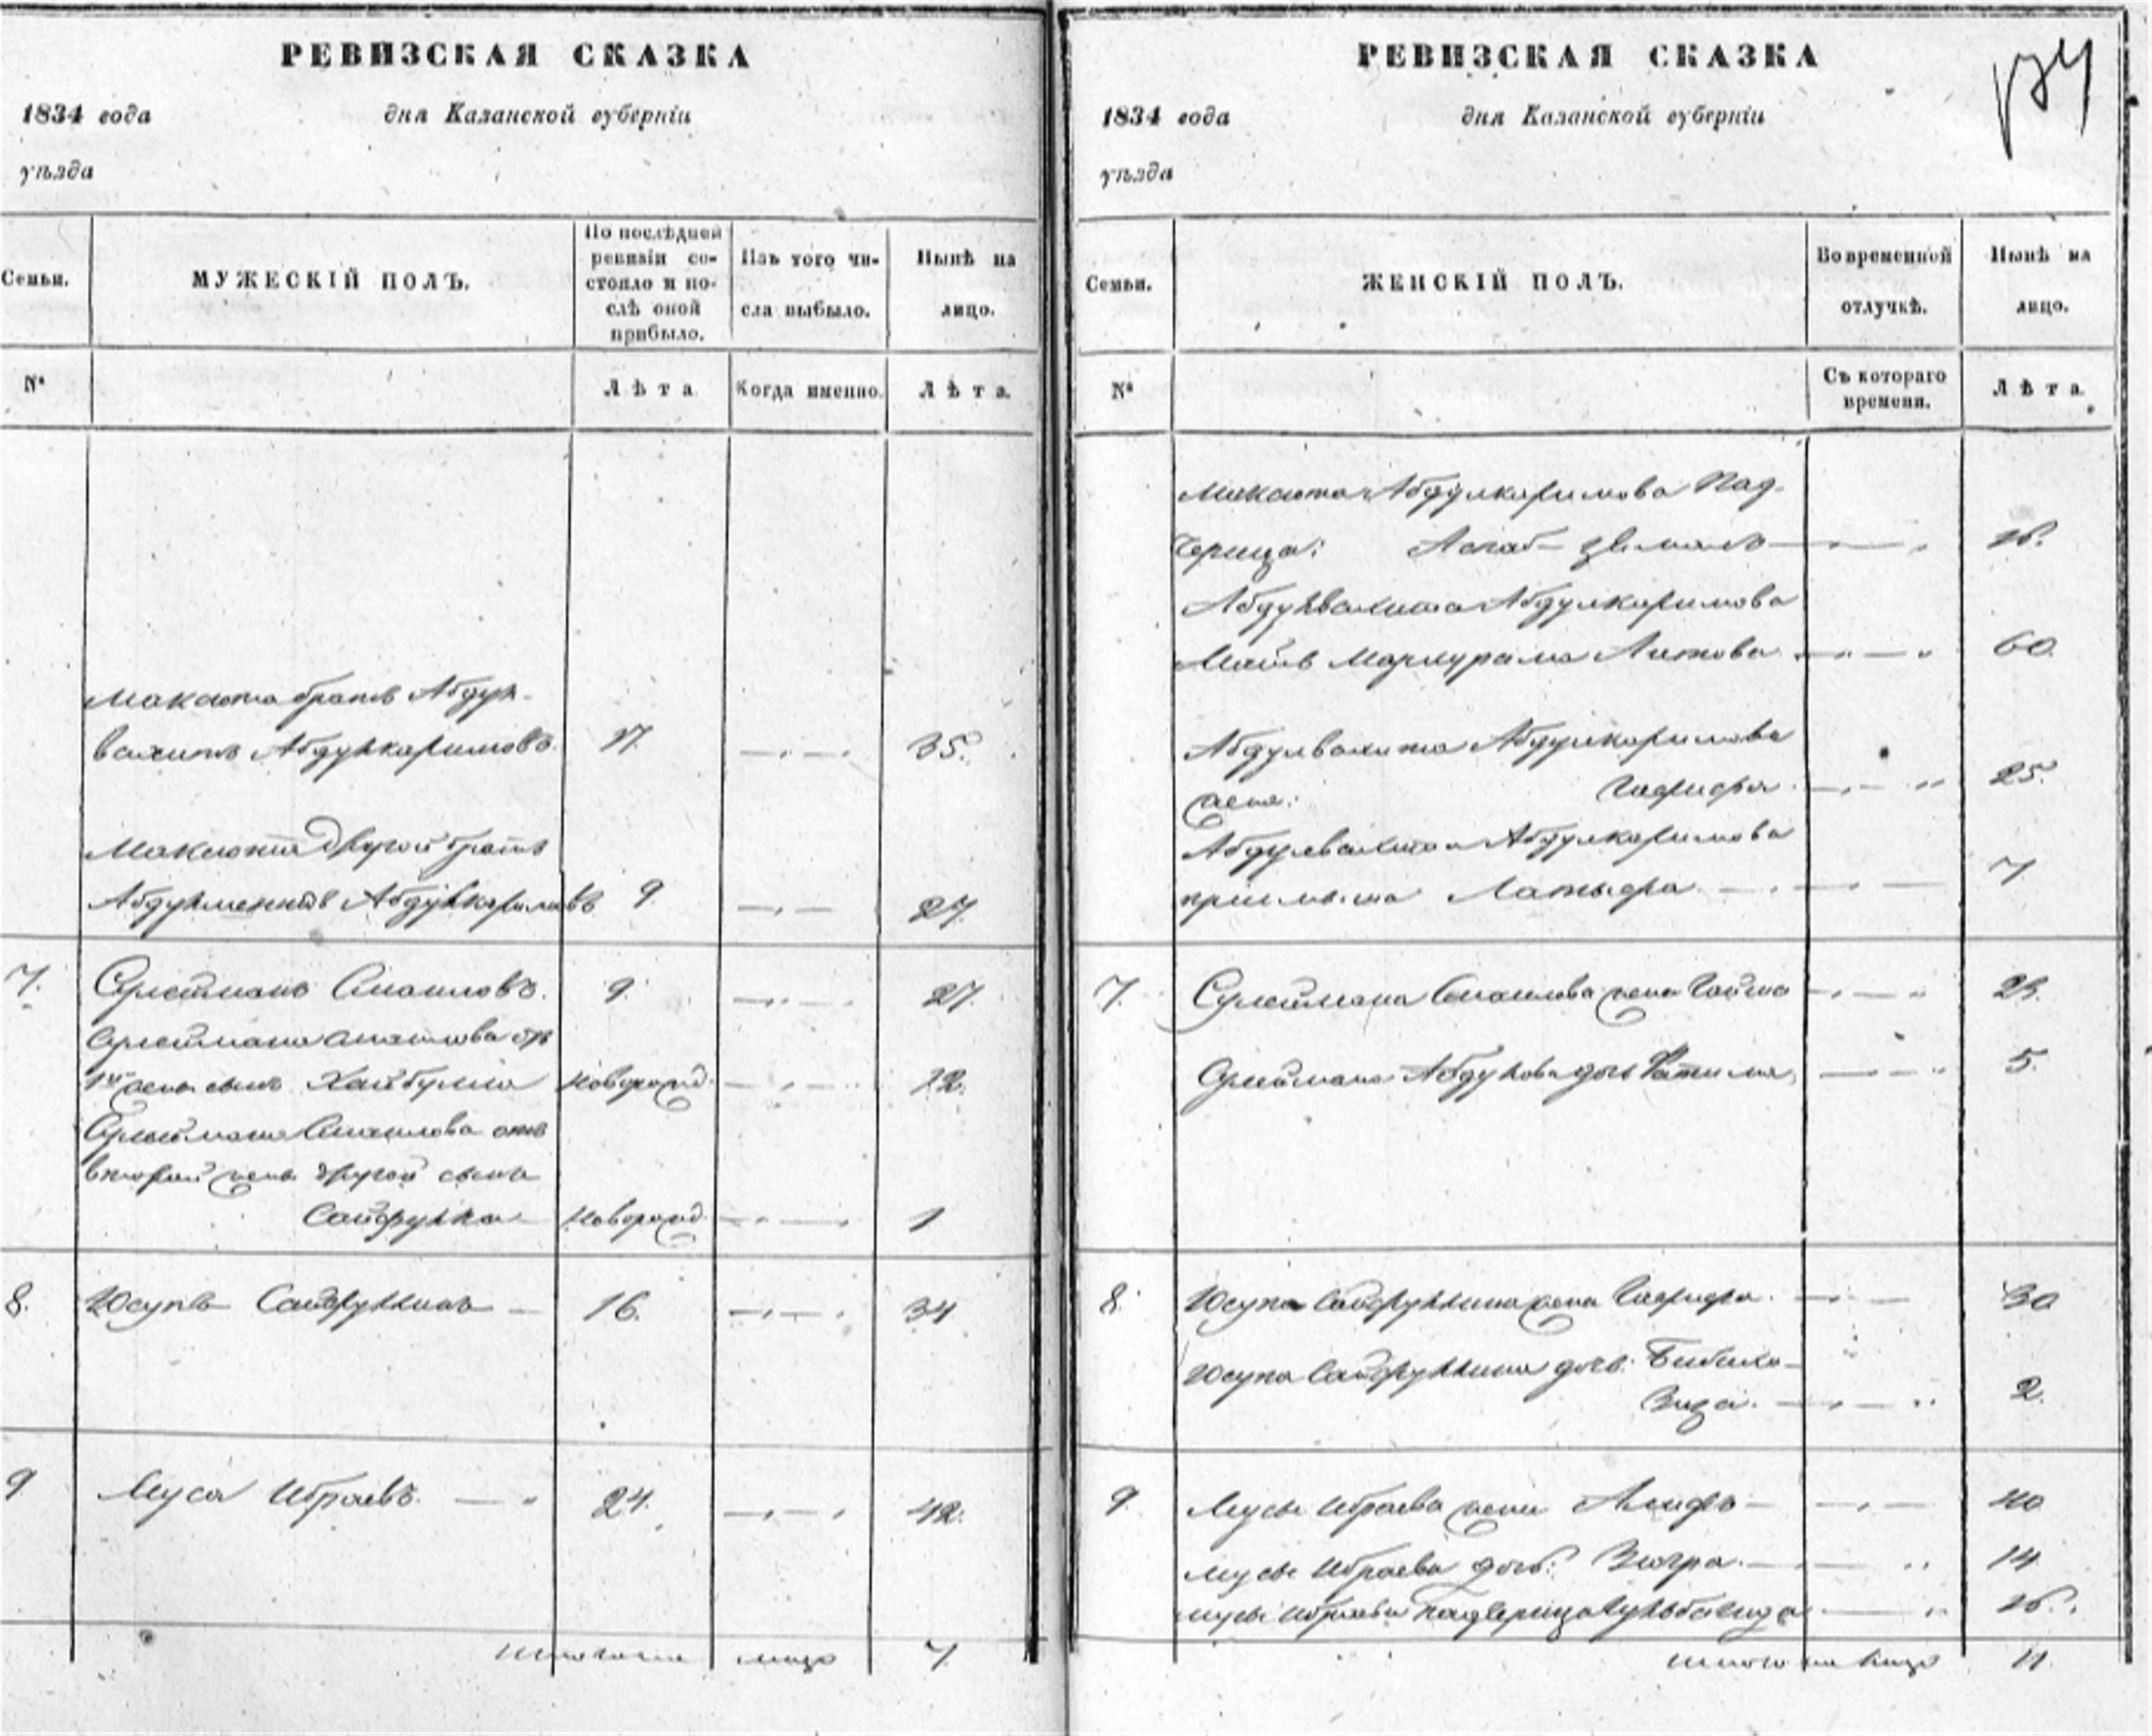 РЕВИЗСКАЯ СКАЗКА
1834 года дня Казанской губерніи
уѣзда
Семьи. МУЖЕСКІЙ ПОЛЪ. По послѣдней ревизіи состояло и послѣ оной прибыло. Изъ того числа выбыло. Нынѣ на лицо.
№ Лѣта Когда именно. Лѣта.
Макаюта братъ Абдул-
вахитъ Абдулкаримовъ. 17. 35.
Макаюта другой братъ
Абдулменнтъ Абдулкаримовъ 9. 27.
7. Сулейманъ Смаиловъ. 9. 27.
Сулеймана Смаилова отъ
1й жены сынъ Хайбулла новорожд. 12.
Сулеймана Смаилова отъ
второй жены другой сынъ
Сайфулла новорожд. 1
8. Юсупъ Сайфуллинъ 16. 34
9 Муса Ибраевъ. 24. 42.
Итого на лицо 7.
РЕВИЗСКАЯ СКАЗКА
1834 года дня Казанской губерніи
уѣзда
Семьи. ЖЕНСКІЙ ПОЛЪ. Во временной отлучкѣ. Нынѣ на лицо.
№ Съ котораго времени. Лѣта
Макаюта Абдулкаримова Пад-
черица:
Абдулвахита Абдулкаримова
Мать 60
Абдулвахита Абдулкаримова
жена: Гафифа 25.
Абдулвахита Абдулкаримова
пріемыша Латыфа 7
7. Сулеймана Смаилова жена
Сулеймана дочь Фатима 5.
8. Юсупа Сайфуллина жена Гафифа. 30
Юсупа Сайфуллина дочь: Бибиха-
2.
9. Мусы Ибраева жена 40
Мусы Ибраева дочь: Зюгра. 14
Мусы Ибраева падчерица
Итого на лицо 11.